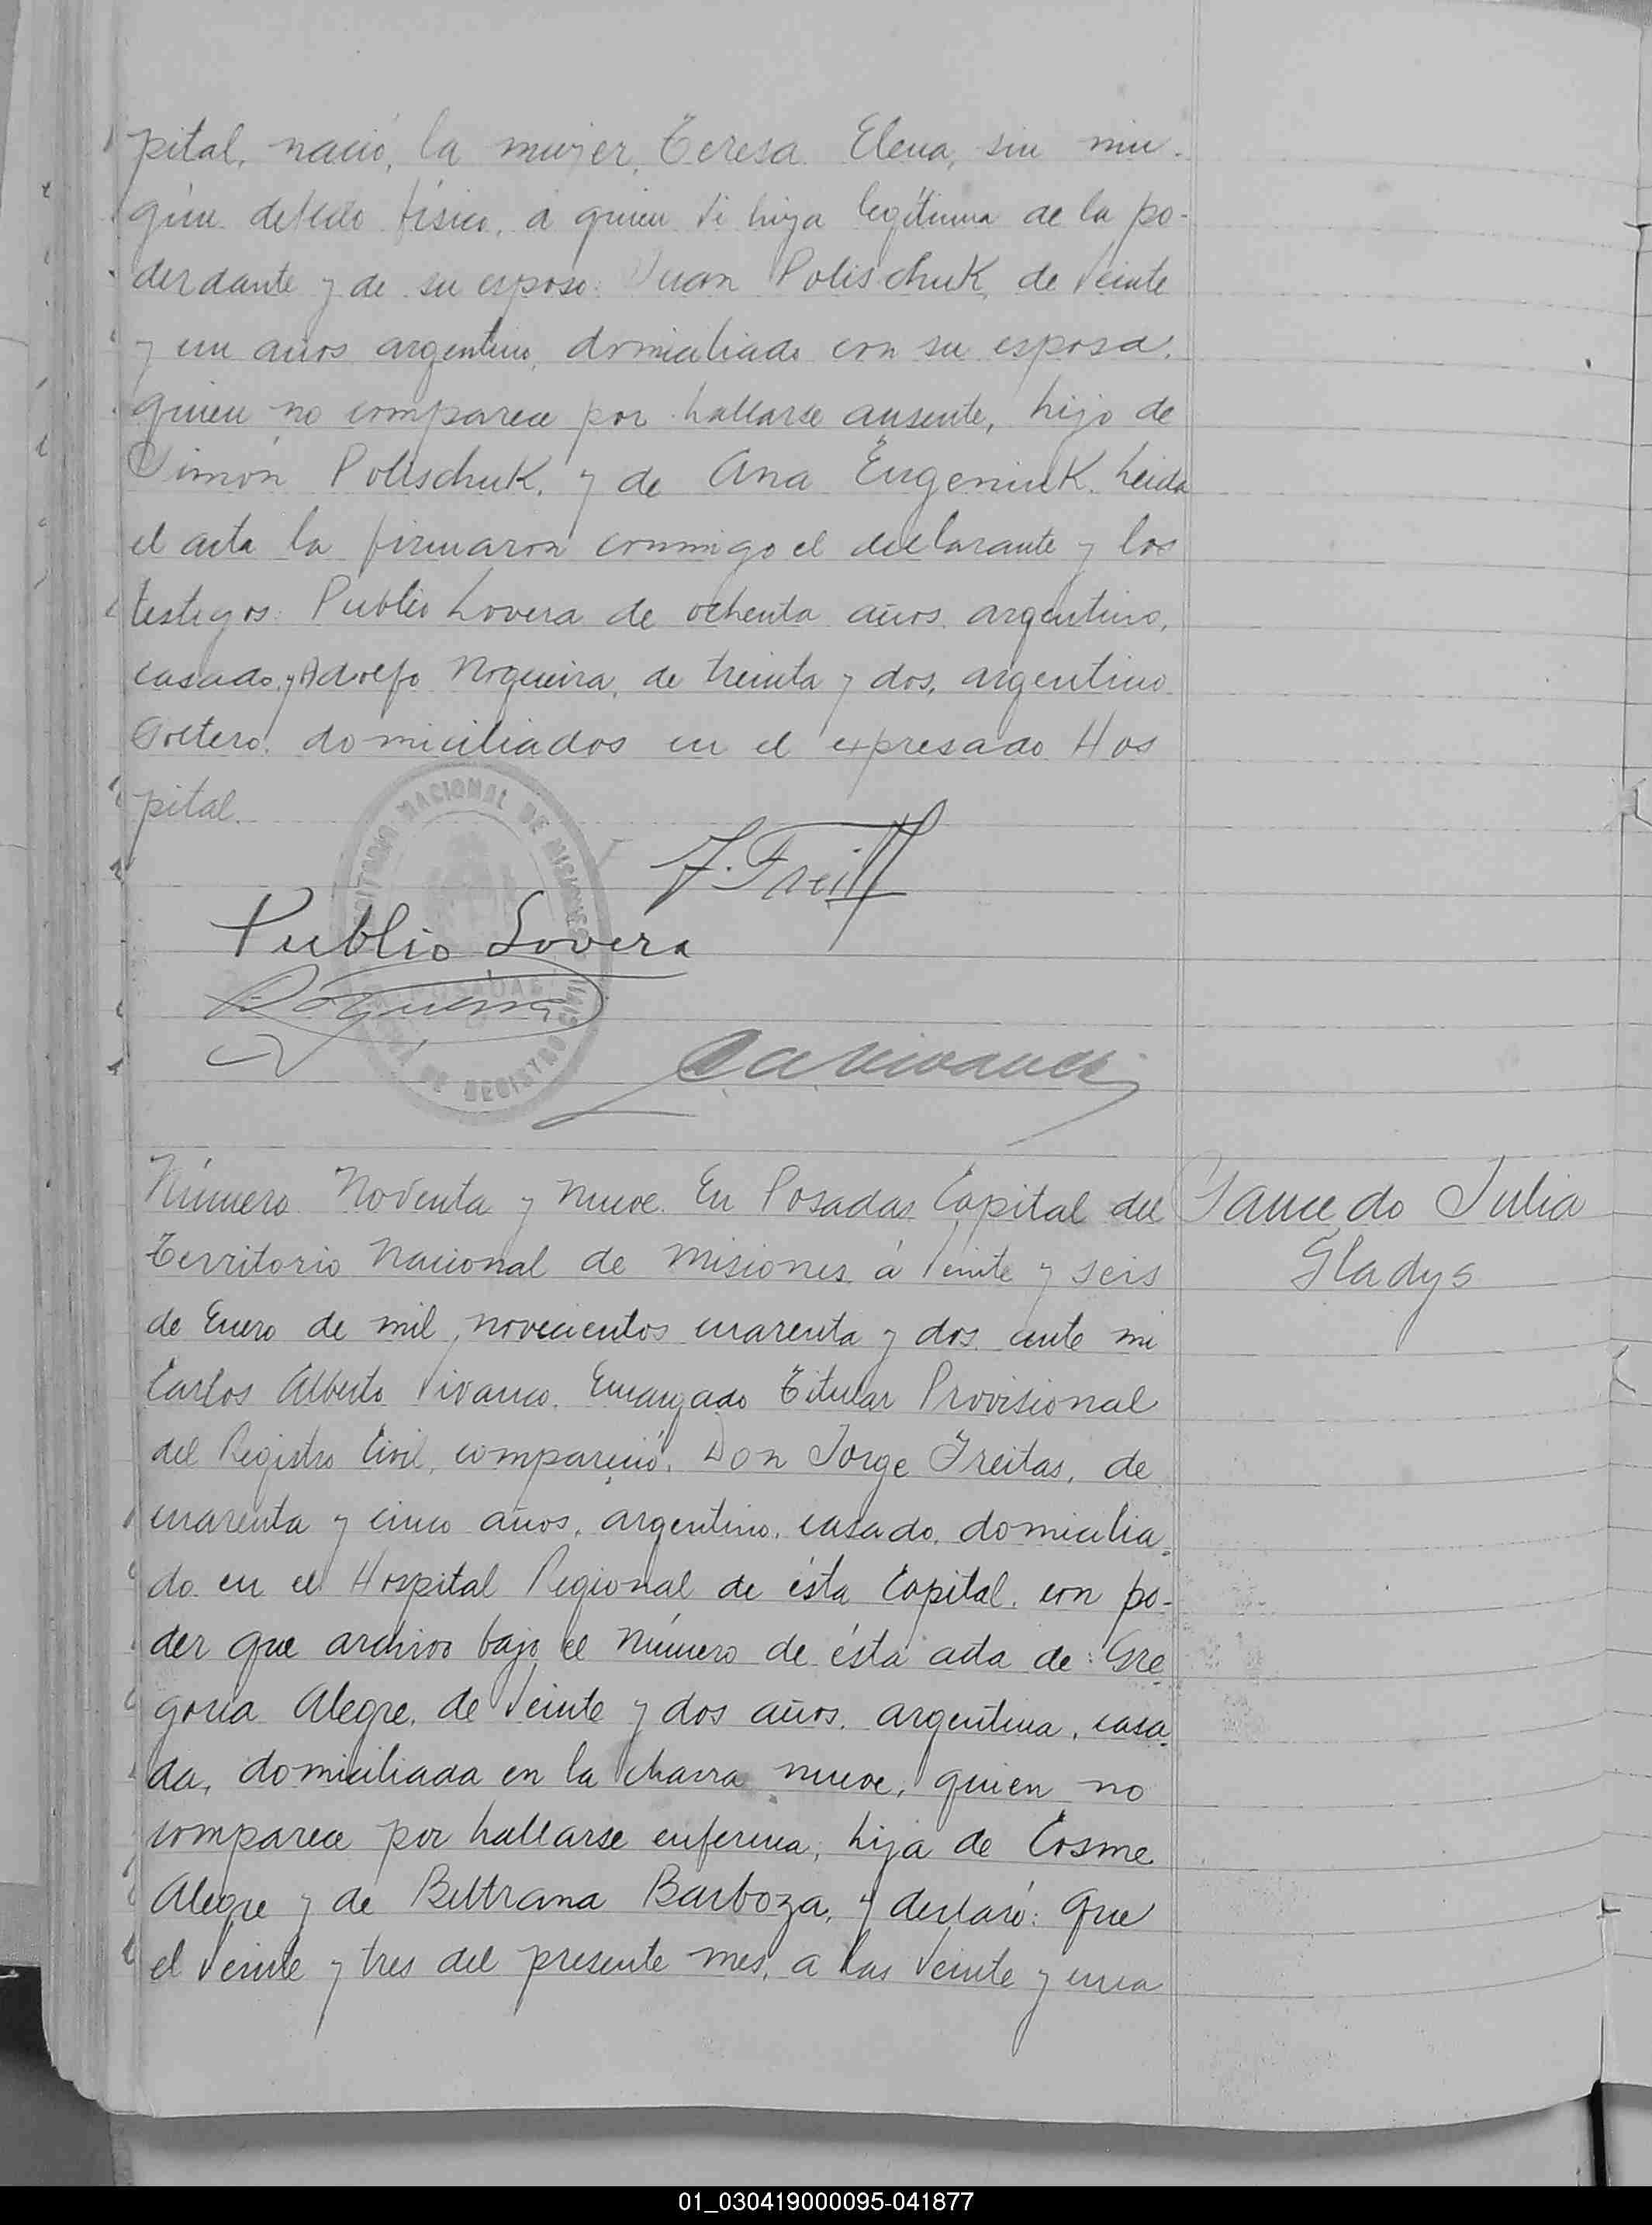 pital, nació, la mujer, Teresa Elena, sin nin-
gún defecto físico, á quien vi hija legítima de la po-
derdante y de su esposo: Juan Polischuk, de veinte
y un años argentino, domiciliado con su esposa,
quien no comparece por hallarse ausente, hijo de
Simón Polischuk, y de Ana Eugeniuk. Leida
el acta la firmaron conmigo el declarante y los
testigos: Publio Lovera de ochenta años argentino,
casado, y Adolfo Nogueira, de treinta y dos, argentino
soltero, domiciliados en el expresado Hos
pital.
TERRITORIO NACIONAL DE MISIONES
J. Freit
Publio Lovera
POSADAS
REGISTRO CIVIL
Número Noventa y nueve. En Posadas Capital del
Saucedo Julia
Territorio Nacional de Misiones á veinte y seis
Gladys
de Enero de mil novecientos cuarenta y dos, ante mi
Carlos Alberto Vivanco, Encargado Titular Provisional
del Registro Civil, compareció, Don Jorge Freitas, de
cuarenta y cinco años, argentino, casado, domicilia-
do en el Hospital Regional de ésta Capital, con po-
der que archivo bajo el número de ésta acta de: Gre
goria Alegre, de veinte y dos años, argentina, casa-
da, domiciliada en la chacra nueve, quien no
comparece por hallarse enferma, hija de Cosme
Alegre y de Beltrana Barboza, y declaró: Que
el veinte y tres del presente mes, a las veinte y una
01_030419000095-041877